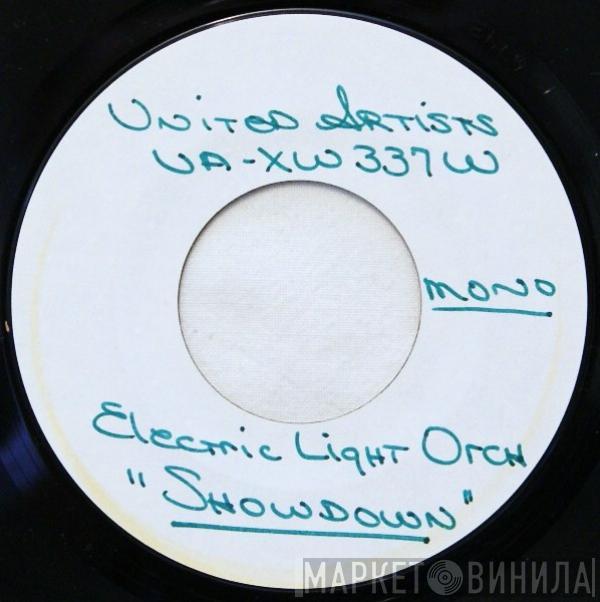 United Artists
UA-XW337W
MONO
Electric Light Orch
"SHOWDOWN"
МАРКЕТ ВИНИЛА